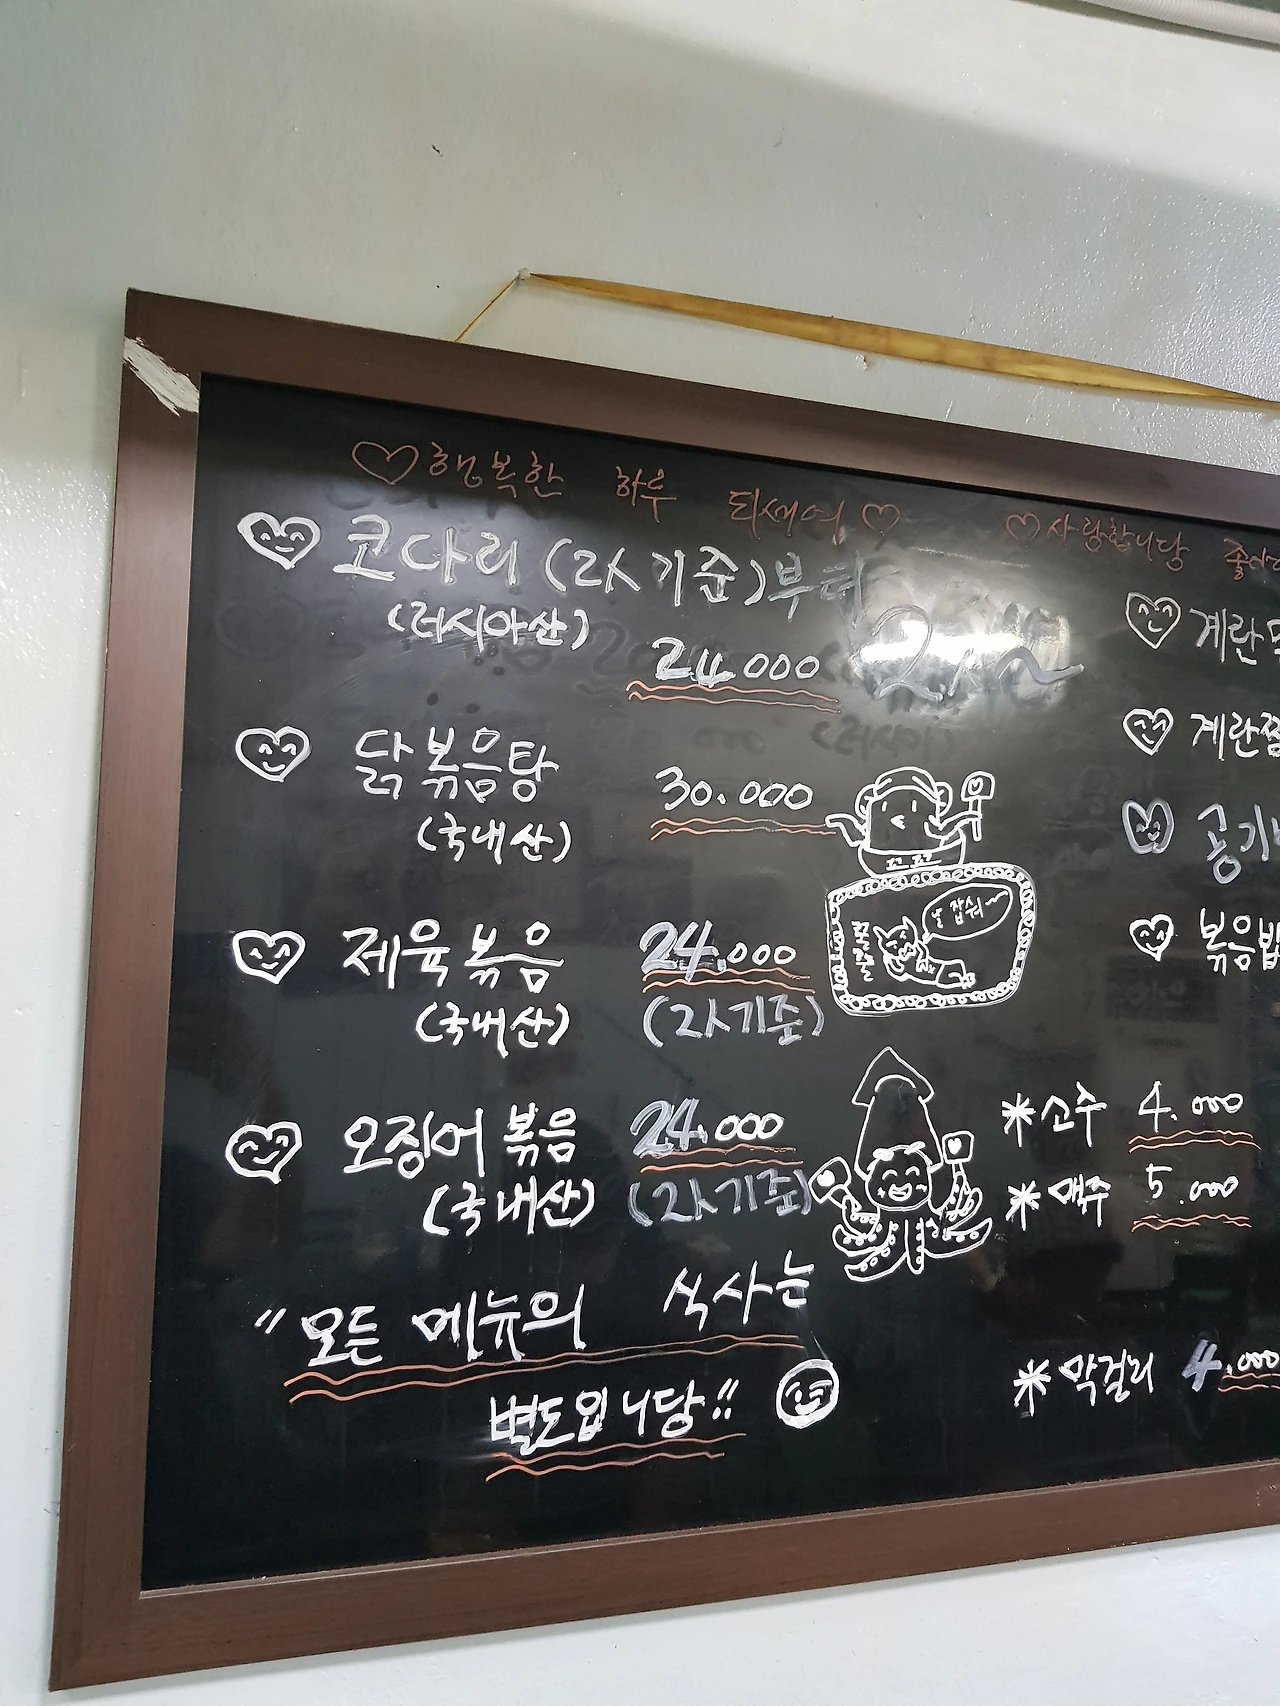 ♡행복한 하루 되세여♡ ♡사랑합니당
코다리 (2人기준)부터
(러시아산)
24.000
닭볶음탕 30.000
(국내산)
제육볶음 24.000
(국내산) (2人기준)
오징어 볶음 24.000
(국내산) (2人기준)
"모든 메뉴의 식사는
별도입니당!!
꼬꼬
날 잡숴~
계란
계란찜
공기
볶음밥
*소주 4.000
*맥주 5.000
*막걸리 4.000